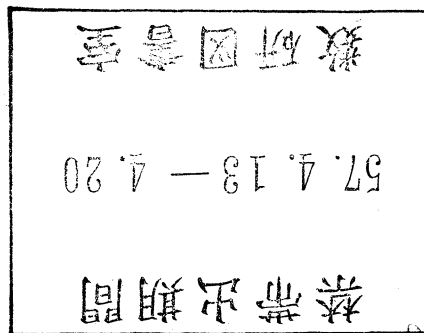 禁帯出期間
57. 4. 13 — 4. 20
数研図書室